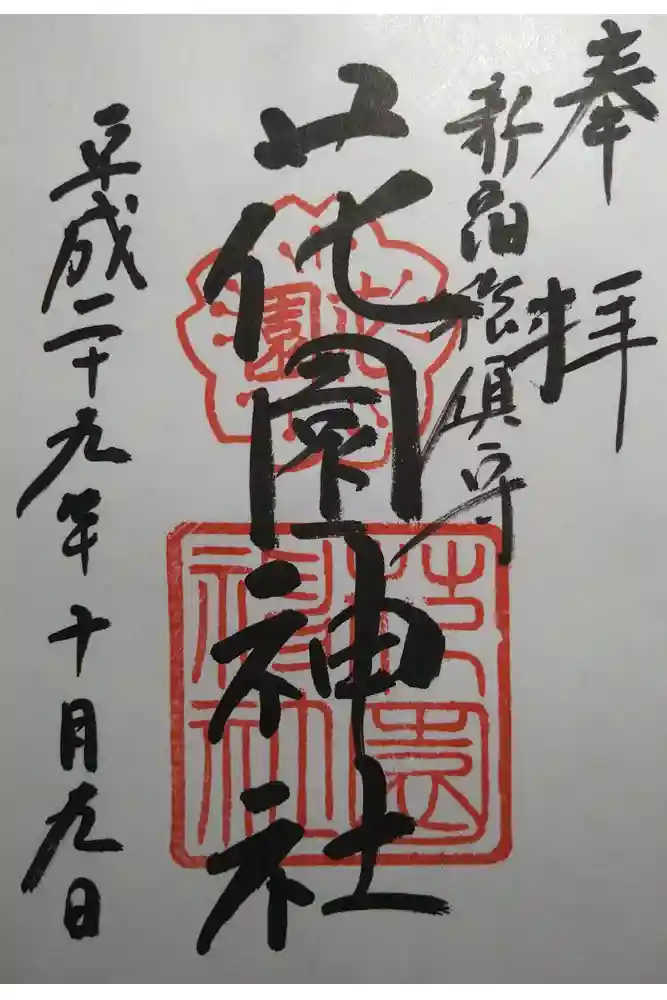 奉拝
新宿総鎮守
花園神社
花園
花園神社
平成二十九年十月九日